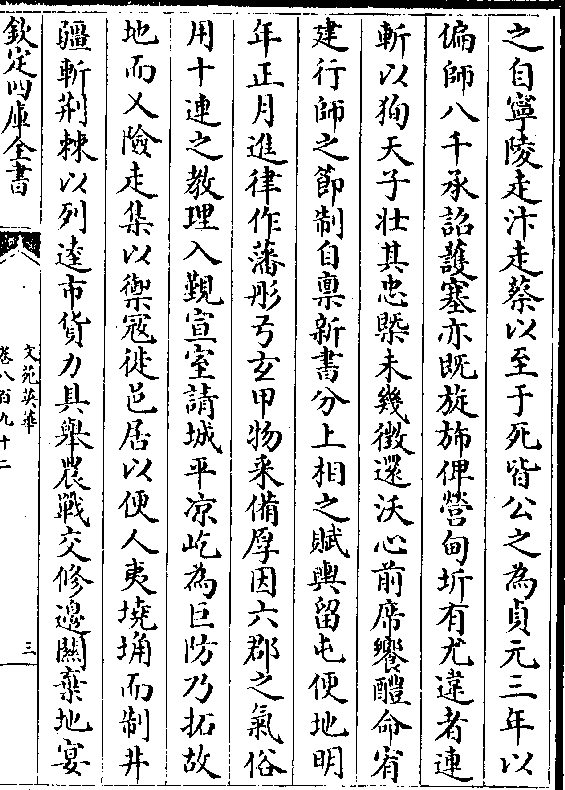 之自寧陵走汴走蔡以至于死皆公之為貞元三年以
偏師八千承詔護塞亦既旋斾俾營甸圻有尤違者連
斬以狥天子壯其忠槩未幾徴還沃心前席饗醴命宥
建行師之節制自禀新書分上相之賦輿留屯便地明
年正月進律作藩彤弓玄甲物采備厚因六郡之氣俗
用十連之教理入覲宣室請城平凉屹為巨防乃拓故
地而乂險走集以禦寇徙邑居以便人夷墝埆而制井
疆斬荆棘以列逵市貨力具舉農戰交修邊關棄地宴
欽定四庫全書
文苑英華
卷八百九十二
三